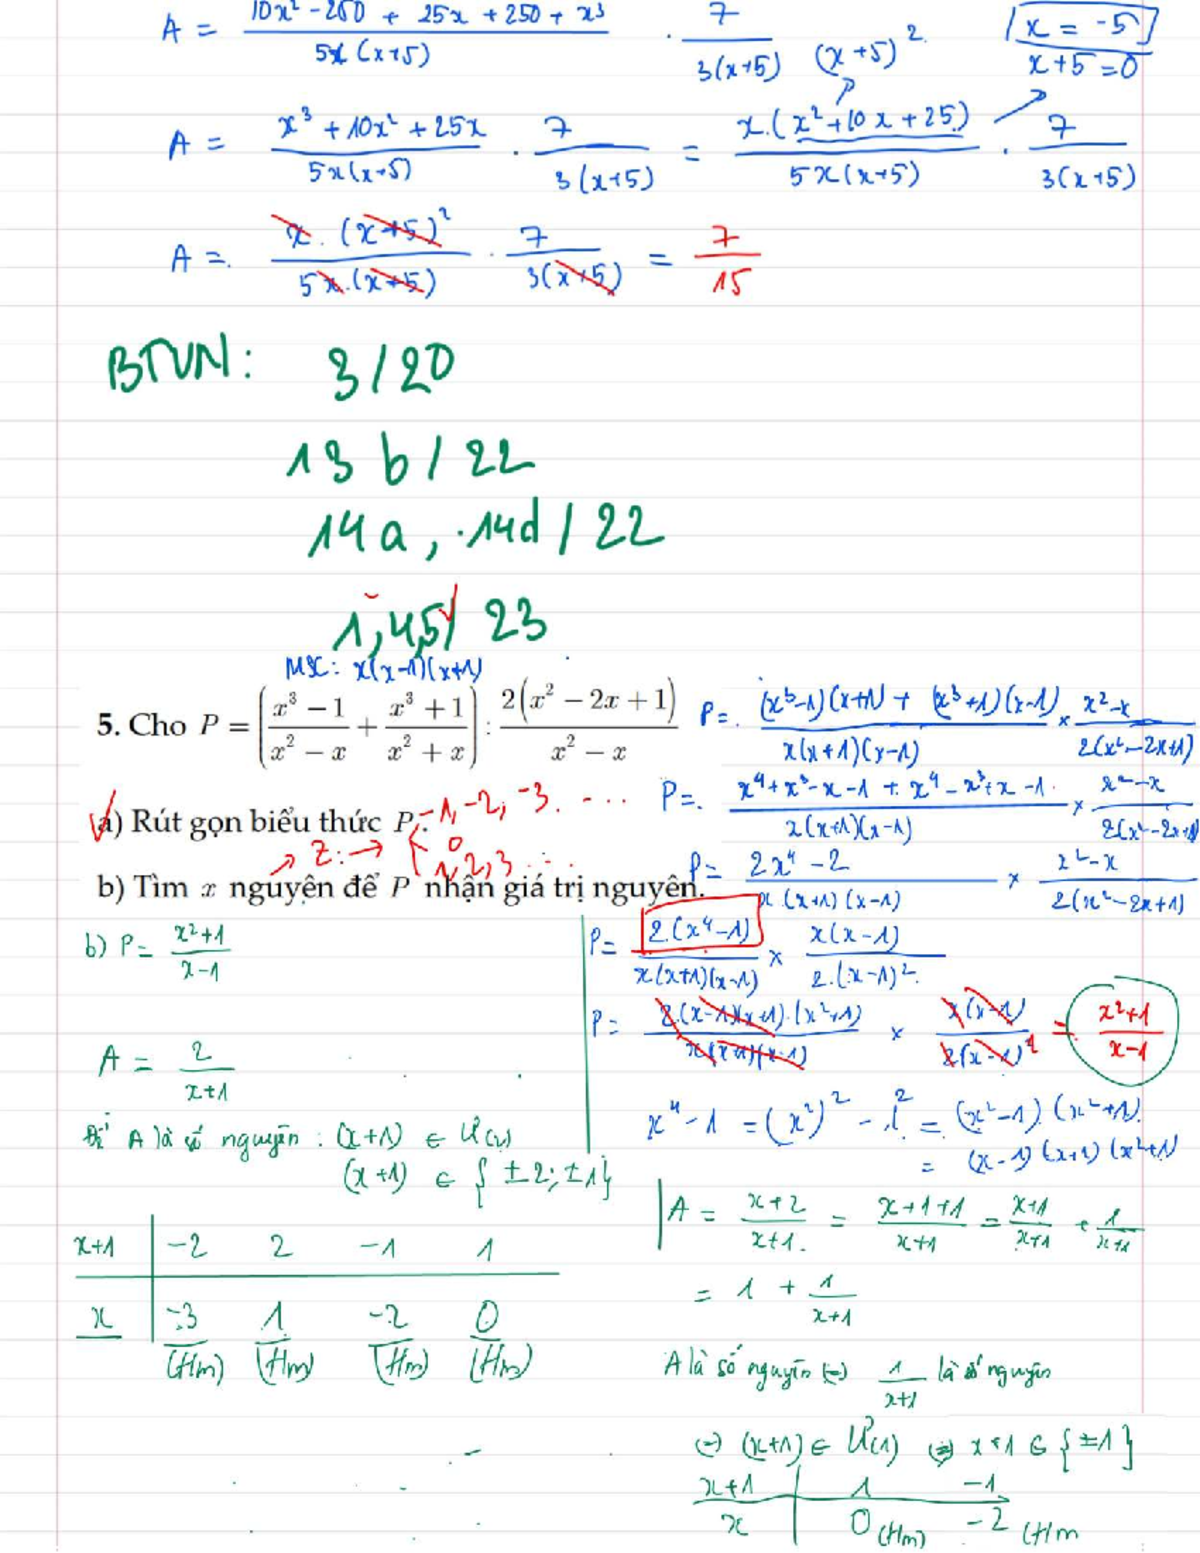 A = (10x² - 250 + 25x + 250 + x³)/(5x(x+5)) · 7/(3(x+5)) (x+5)² x = -5
x+5 = 0
A = (x³ + 10x² + 25x)/(5x(x+5)) · 7/(3(x+5)) = (x.(x²+10x+25))/(5x(x+5)) · 7/(3(x+5))
A = (x.(x+5)²)/(5x.(x+5)) · 7/(3(x+5)) = 7/15
BTVN: 3/20
13b/22
14a, 14d/22
1,4,5/23
MSC: x(x-1)(x+1)
5. Cho P = ((x³ − 1)/(x² − x) + (x³ + 1)/(x² + x)) : (2(x² − 2x + 1))/(x² − x)
a) Rút gọn biểu thức P.
-1, -2, -3. ...
Z: → 0
1, 2, 3 ...
b) Tìm x nguyên để P nhận giá trị nguyên.
P = ((x³-1)(x+1) + (x³+1)(x-1))/(x(x+1)(x-1)) × (x²-x)/(2(x²-2x+1))
P = (x⁴+x³-x-1 + x⁴-x³+x-1)/(x(x+1)(x-1)) × (x²-x)/(2(x²-2x+1))
P = (2x⁴-2)/(x.(x+1)(x-1)) × (x²-x)/(2(x²-2x+1))
P = (2.(x⁴-1))/(x(x+1)(x-1)) × (x(x-1))/(2.(x-1)²)
P = (2.(x-1)(x+1).(x²+1))/(x(x+1)(x-1)) × (x(x-1))/(2(x-1)²) = (x²+1)/(x-1)
x⁴-1 = (x²)² - 1² = (x²-1)(x²+1)
= (x-1)(x+1)(x²+1)
b) P = (x²+1)/(x-1)
A = 2/(x+1)
Để A là số nguyên : (x+1) ∈ Ư(2)
(x+1) ∈ {±2; ±1}
x+1 -2 2 -1 1
x -3 1 -2 0
(tm) (tm) (tm) (tm)
A = (x+2)/(x+1) = (x+1+1)/(x+1) = (x+1)/(x+1) + 1/(x+1)
= 1 + 1/(x+1)
A là số nguyên (=) 1/(x+1) là số nguyên
(=) (x+1) ∈ Ư(1) (=) x+1 ∈ {±1}
x+1 1 -1
x 0 (tm) -2 (tm